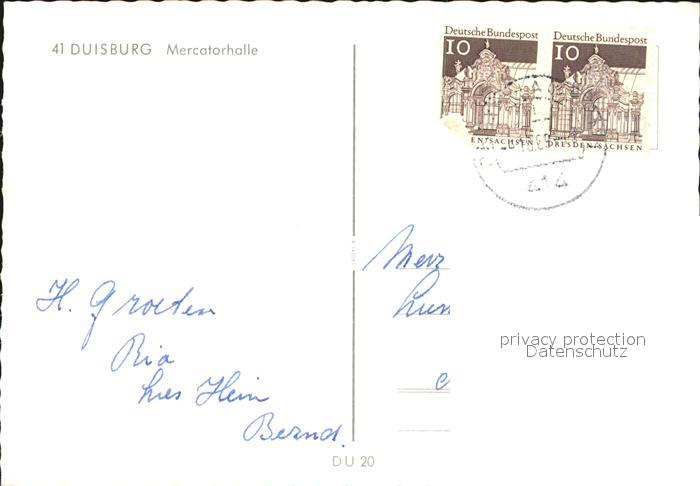 41 DUISBURG Mercatorhalle
Deutsche Bundespost
10
EN/SACHSEN
Deutsche Bundespost
10
DRESDEN/SACHSEN
H. Groeten
Ria
Hein
Bernd.
privacy protection
Datenschutz
DU 20